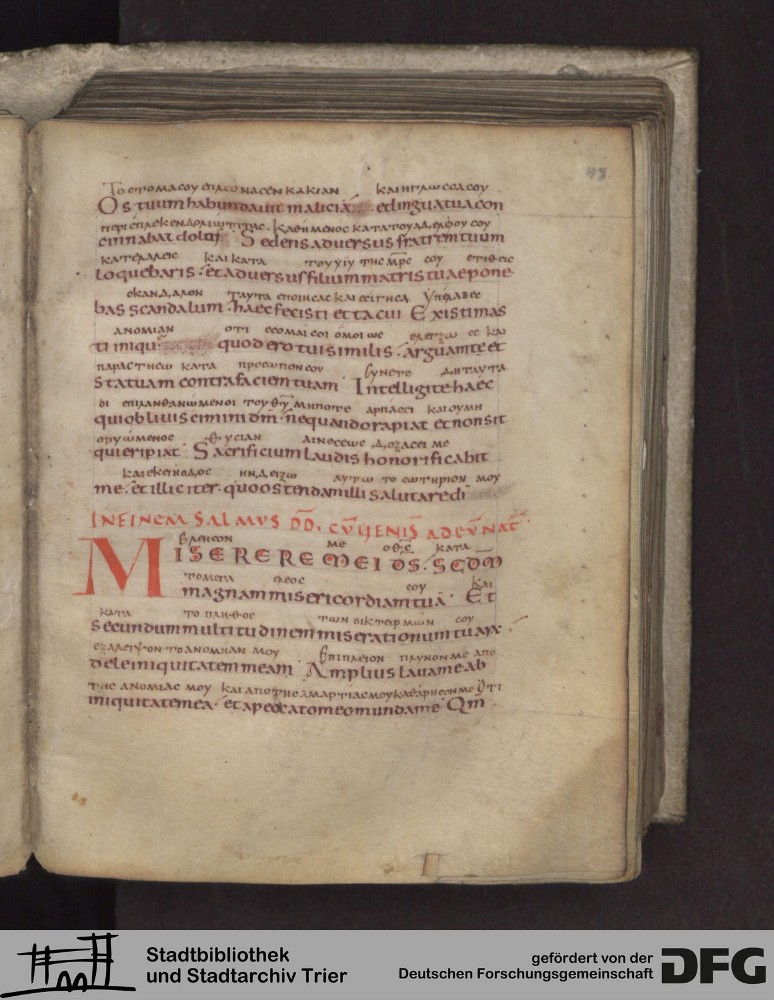 48
Το ϲτομα ϲου επλεοναϲεν κακιαν και η γλωϲϲα ϲου
Os tuum habundauit malicia et lingua tua con
περιεπλεκεν δολιωτητας. καθημενοϲ κατα του αδελφου ϲου
cinnabat dolus Sedens aduersus fratrem tuum
κατελαλειϲ και κατα του υιυ τηϲ μρ̅ϲ ϲου ετιθειϲ
loquebaris · et aduersus filium matris tuae pone
ϲκανδαλον ταυτα εποιηϲαϲ και εϲιγηϲα ὑπελαβεϲ
bas scandalum · haec fecisti et tacui Existimas
ανομιαν οτι εϲομαι ϲοι ομοιωϲ ελεγξω ϲε και
ti iniqu quod ero tui similis · arguam te et
παραϲτηϲω κατα προϲωπον ϲου ϲυνετε δη ταυτα
statuam contra faciem tuam · Intelligite haec
οι επιλανθανωμενοι του θυ̅ μηποτε αρπαϲει και ου μη
qui obliuiscimini dm̅ · nequando rapiat et non sit
ο ρυωμενοϲ θυϲιαν αινεϲεωϲ δοξαϲει με
qui eripiat · Sacrificium laudis honorificabit
και εκει η οδοϲ ην δειξω αυτω το ϲωτηριον μου
me · et illic iter · quo ostendam illi salutare di
IN FINEM SALMUS DD̅. CU̅ UENIS̅ AD EU̅ NAT̅
ελαιηϲον με ο θε̅ϲ κατα
MISERERE MEI DS · SCDM̅
το μεγα ελεοϲ ϲου και
magnam misericordiam tua̅ · Et
κατα το πληθοϲ των οικτειρμων ϲου
secundum multitudinem miserationum tuarum
εξαλειψον το ανομημαν μου Επιπλειον πλυνον με απο
dele iniquitatem meam Amplius laua me ab
τηϲ ανομιαϲ μου και απο τηϲ αμαρτιαϲ μου καθαρηϲον με Οτι
iniquitate mea · et a peccato meo munda me Qm̅
Stadtbibliothek
und Stadtarchiv Trier
gefördert von der
Deutschen Forschungsgemeinschaft
DFG